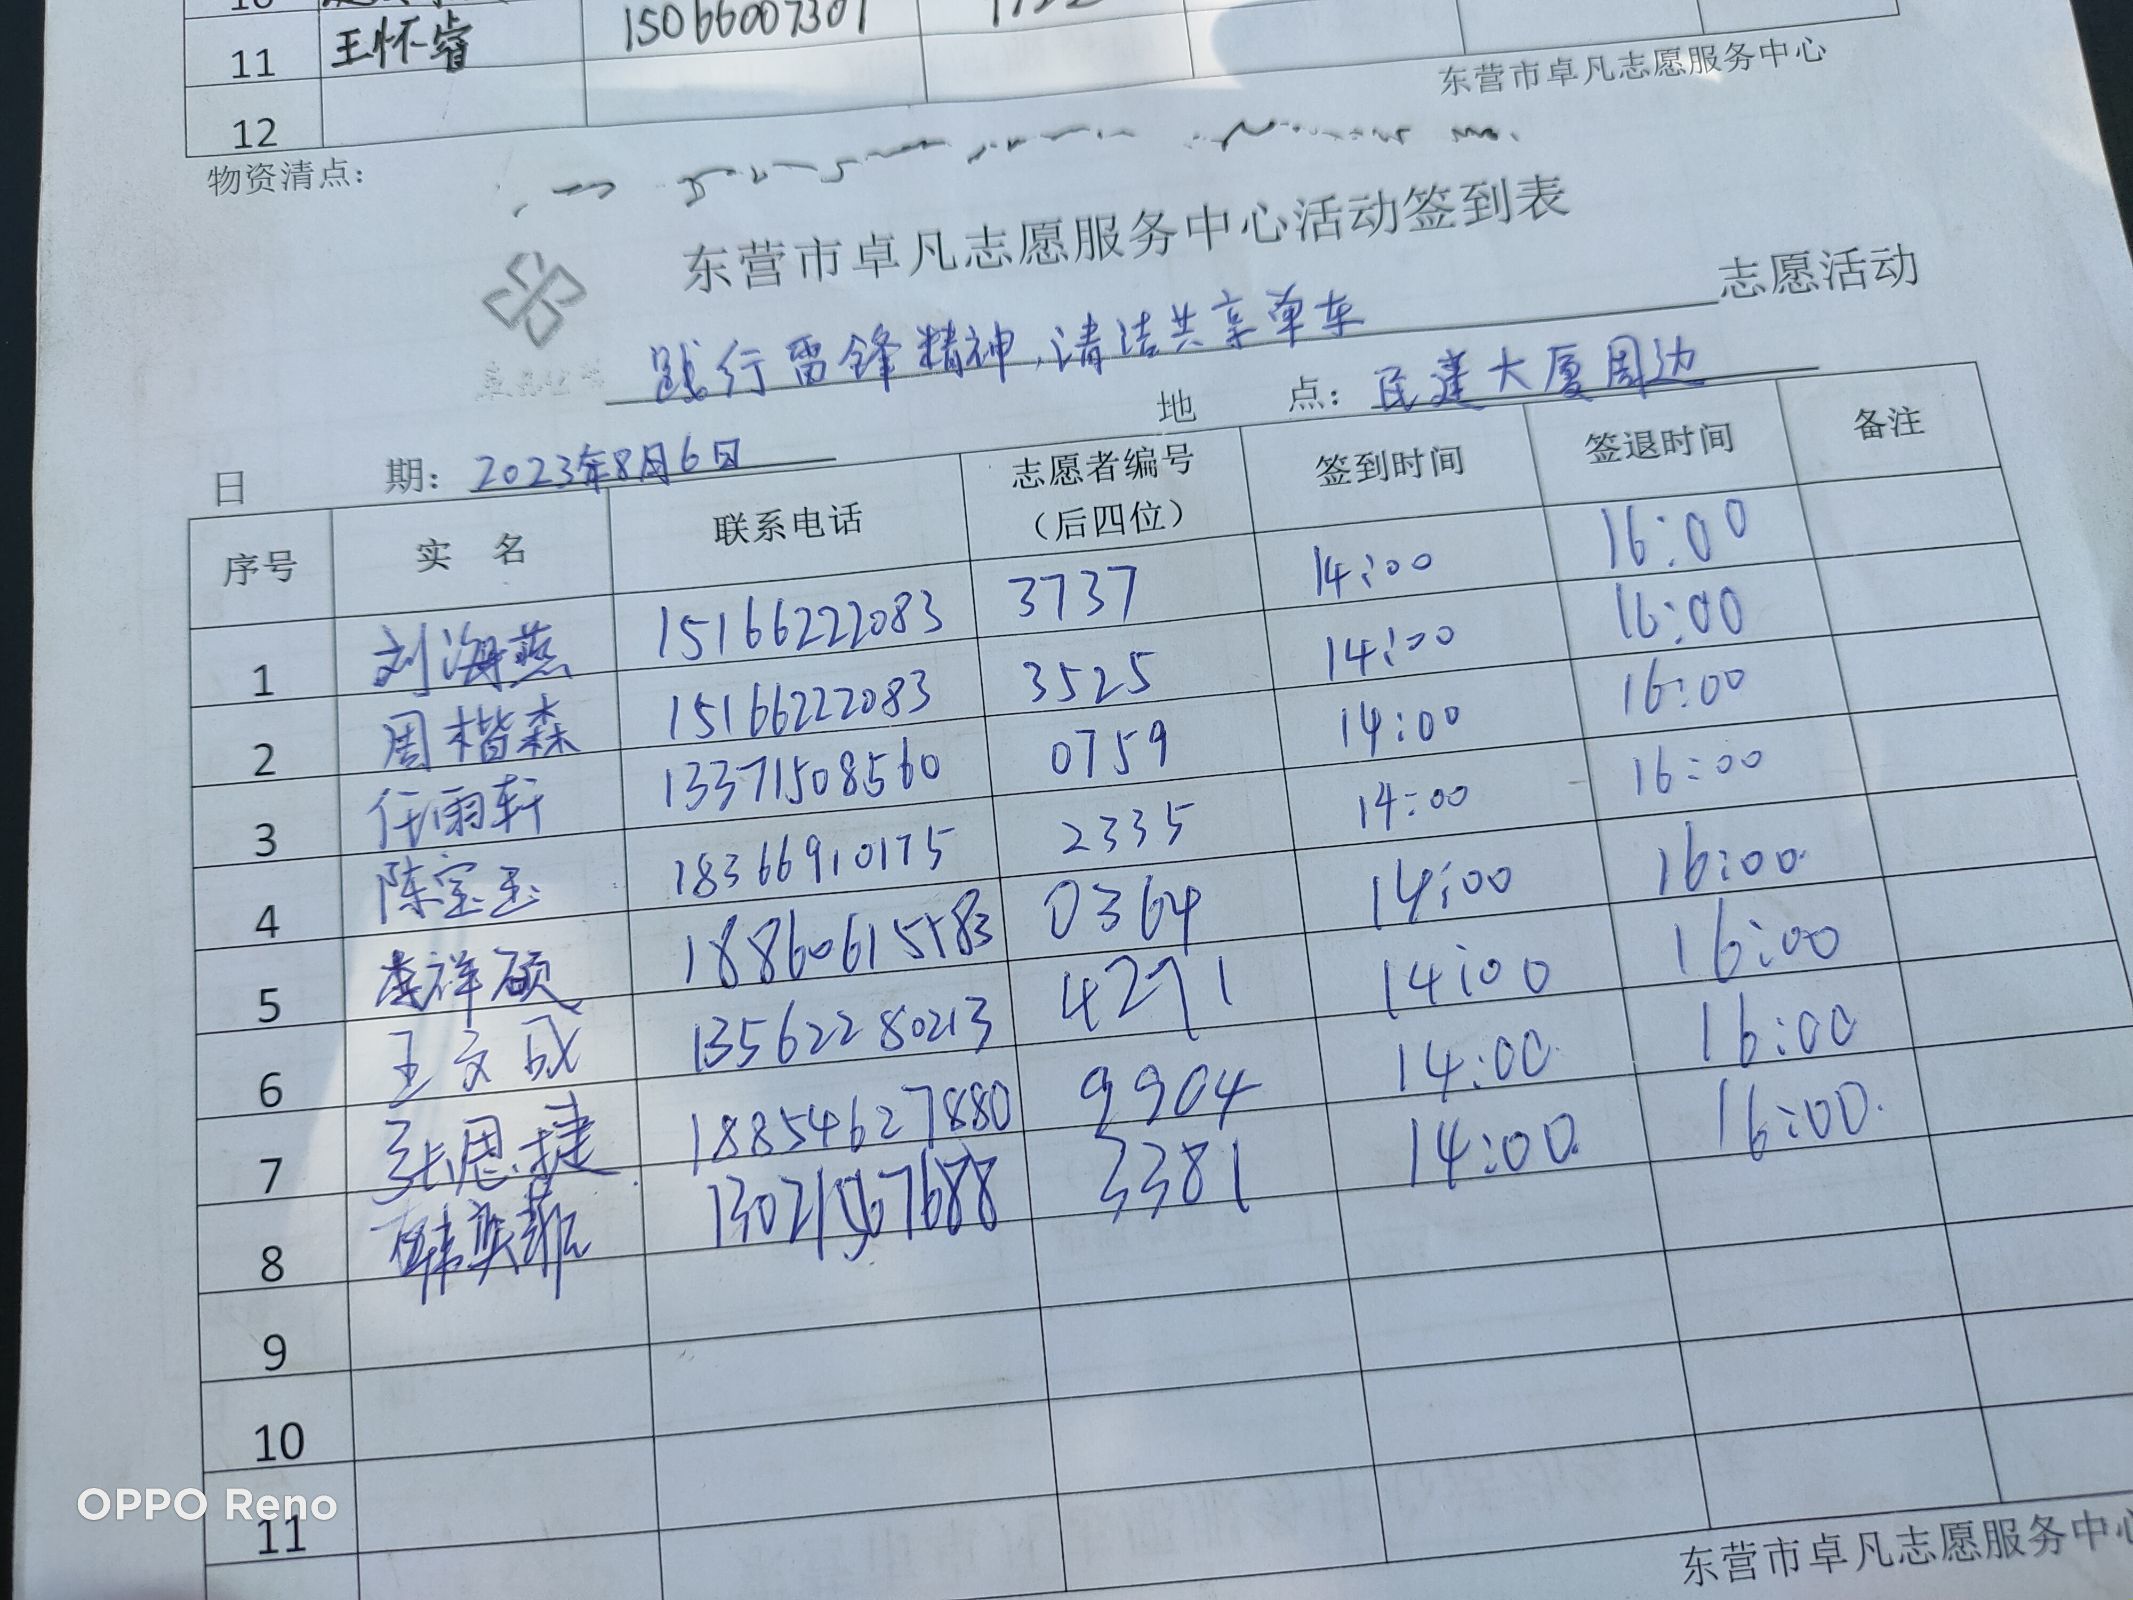 11 王怀睿 15066007301
12
东营市卓凡志愿服务中心
物资清点：
东营市卓凡志愿服务中心活动签到表
践行雷锋精神,清洁共享单车 志愿活动
日 期：2023年8月6日 地 点：民建大厦周边
序号 实 名 联系电话 志愿者编号（后四位） 签到时间 签退时间 备注
1 刘海燕 15166222083 3737 14:00 16:00
2 周楷森 15166222083 3525 14:00 16:00
3 任雨轩 13371508560 0759 14:00 16:00
4 陈宝玉 18366910175 2335 14:00 16:00
5 李祥硕 18860615183 0364 14:00 16:00
6 王文成 13562280213 4271 14:00 16:00
7 张恩捷 18854627880 9904 14:00 16:00
8 韩奕菲 3381 14:00 16:00
9
10
11
东营市卓凡志愿服务中心
OPPO Reno